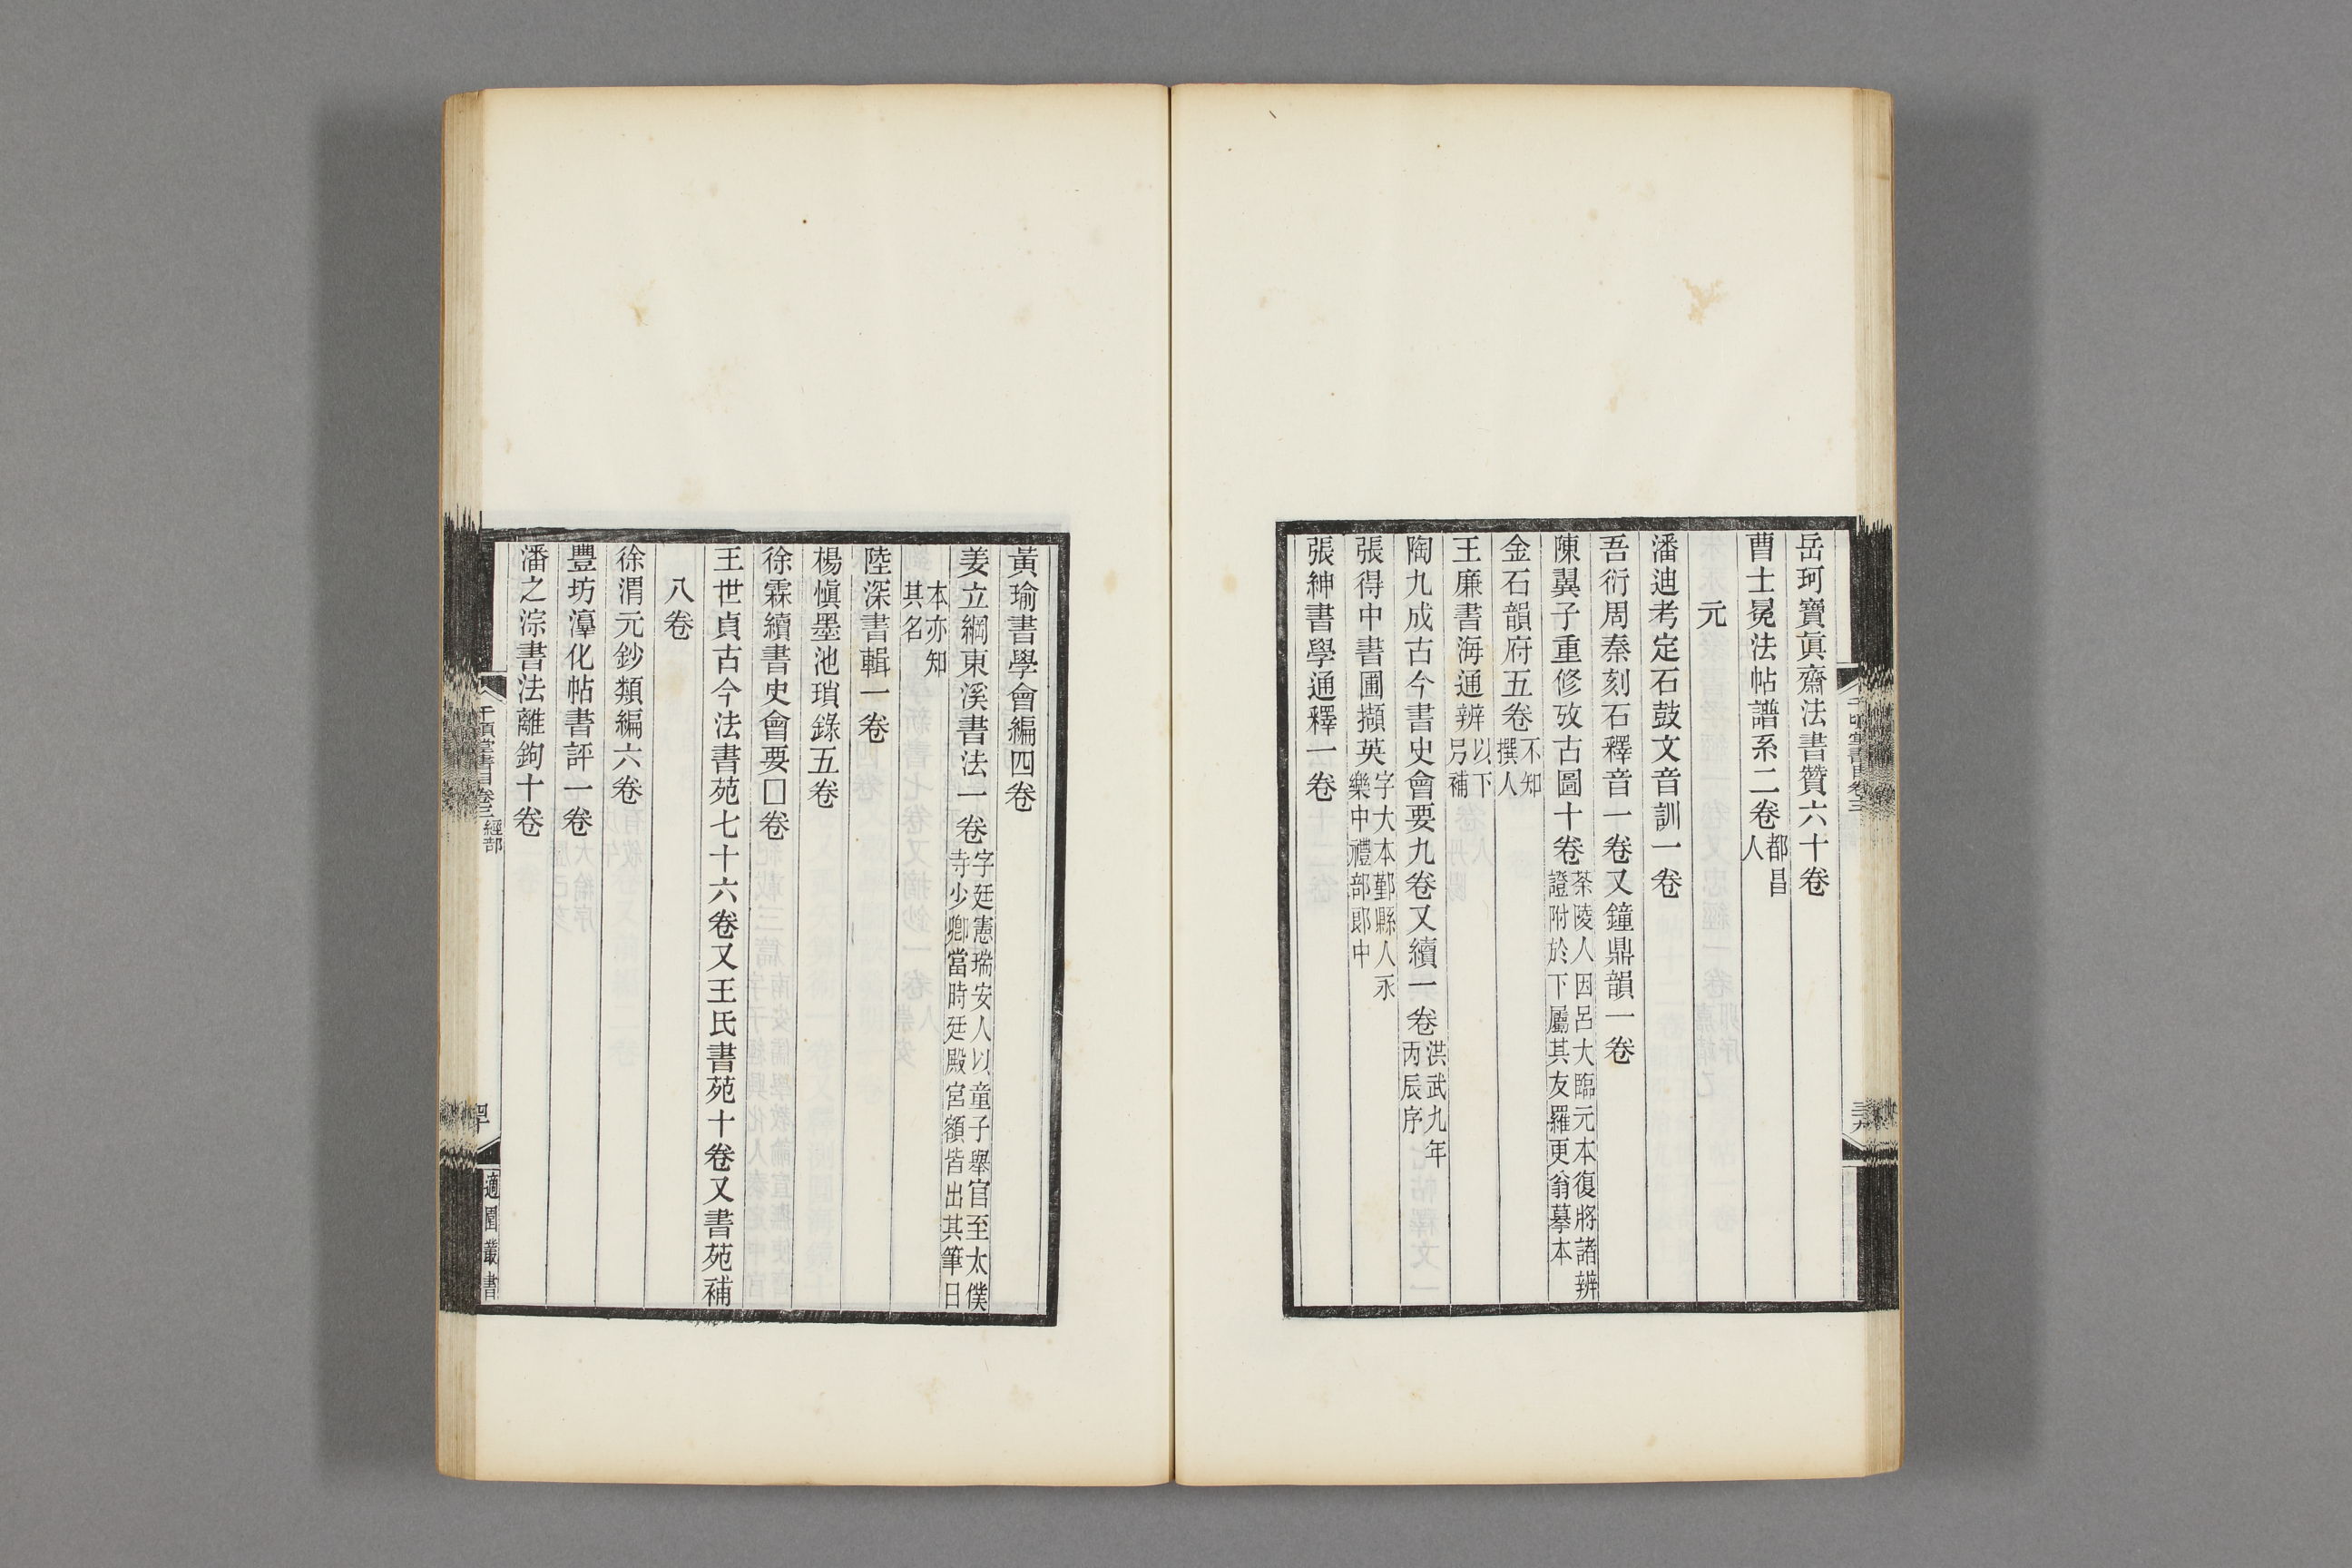 岳珂寶眞齋法書贊六十卷
曹士冕法帖譜系二卷都昌人
元
潘迪考定石鼓文音訓一卷
吾衍周秦刻石釋音一卷又鐘鼎韻一卷
陳翼子重修攷古圖十卷茶陵人因呂大臨元本復將諸辨證附於下屬其友羅更翁摹本
金石韻府五卷不知撰人
王廉書海通辨以下另補
陶九成古今書史會要九卷又續一卷洪武九年丙辰序
張得中書圃擷英字大本鄞縣人永樂中禮部郎中
張紳書學通釋一卷
黃瑜書學會編四卷
姜立綱東溪書法一卷字廷憲瑞安人以童子舉官至太僕寺少卿當時廷殿宮額皆出其筆日
本亦知其名
陸深書輯一卷
楊愼墨池瑣錄五卷
徐霖續書史會要囗卷
王世貞古今法書苑七十六卷又王氏書苑十卷又書苑補
八卷
徐渭元鈔類編六卷
豐坊湻化帖書評一卷
潘之淙書法離鉤十卷
千頃堂書目卷三 經部
四十
適園叢書